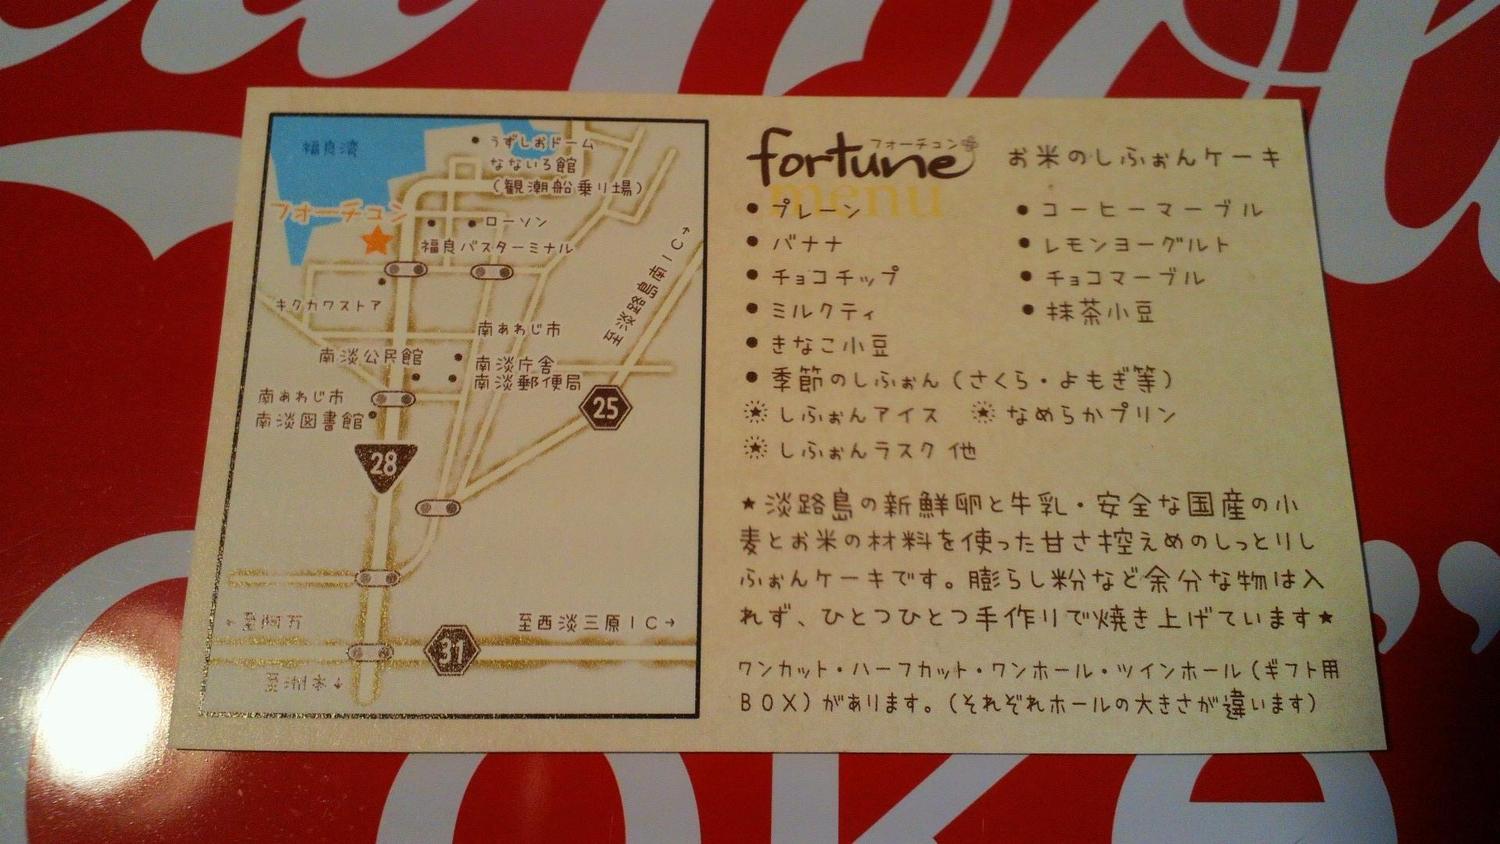 福良湾
うずしおドーム
なないろ館
(観潮船乗り場)
フォーチュン
ローソン
福良バスターミナル
至淡路島南IC→
キタカワストア
南あわじ市
南淡公民館
南淡庁舎
南淡郵便局
南あわじ市
南淡図書館
25
28
←至阿万
至西淡三原IC→
31
至洲本↓
fortune フォーチュン お米のしふぉんケーキ
menu
●プレーン ●コーヒーマーブル
●バナナ ●レモンヨーグルト
●チョコチップ ●チョコマーブル
●ミルクティ ●抹茶小豆
●きなこ小豆
●季節のしふぉん(さくら・よもぎ等)
★しふぉんアイス ★なめらかプリン
★しふぉんラスク 他
★淡路島の新鮮卵と牛乳・安全な国産の小
麦とお米の材料を使った甘さ控えめのしっとりし
ふぉんケーキです。膨らし粉など余分な物は入
れず、ひとつひとつ手作りで焼き上げています★
ワンカット・ハーフカット・ワンホール・ツインホール(ギフト用
BOX)があります。(それぞれホールの大きさが違います)